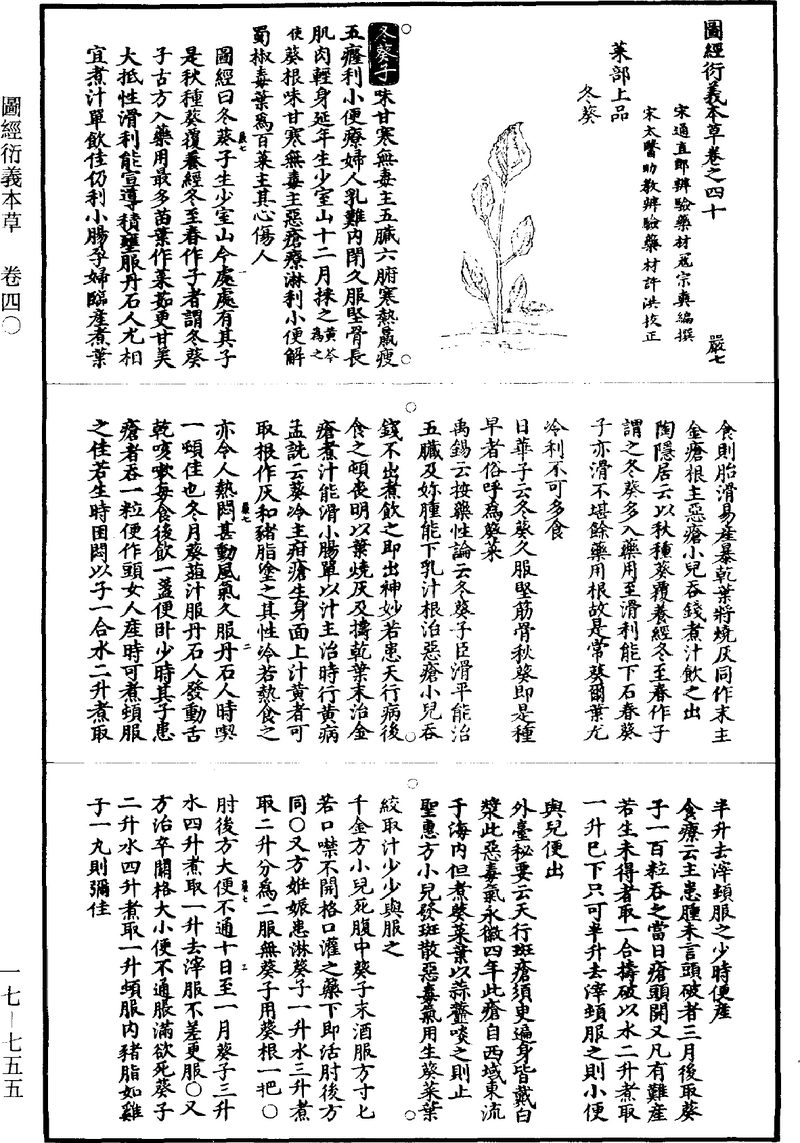 圖經衍義本草卷之四十
嚴七
宋通直郎辨驗藥材寇宗奭編撰
宋太醫助教辨驗藥材許洪校正
菜部上品
冬葵
冬葵子味甘寒無毒主五臟六腑寒熱羸瘦
五癃利小便療婦人乳難內閉久服堅骨長
肌肉輕身延年生少室山十二月採之黃芩為之
使葵根味甘寒無毒主惡瘡療淋利小便解
蜀椒毒葉為百菜主其心傷人
圖經曰冬葵子生少室山今處處有其子
是秋種葵覆養經冬至春作子者謂冬葵
子古方入藥用最多苗葉作菜茹更甘美
大抵性滑利能宣導積壅服丹石人尤相
宜煮汁單飲佳仍利小腸孕婦臨產煮葉
食則胎滑易產暴乾葉將燒灰同作末主
金瘡根主惡瘡小兒吞錢煮汁飲之出
陶隱居云以秋種葵覆養經冬至春作子
謂之冬葵多入藥用至滑利能下石春葵
子亦滑不堪餘藥用根故是常葵爾葉尤
冷利不可多食
日華子云冬葵久服堅筋骨秋葵即是種
早者俗呼為葵菜
禹錫云按藥性論云冬葵子臣滑平能治
五臟及妳腫能下乳汁根治惡瘡小兒吞
錢不出煮飲之即出神妙若患天行病後
食之頓喪明以葉燒灰及擣乾葉末治金
瘡煮汁能滑小腸單以汁主治時行黃病
孟詵云葵冷主疳瘡生身面上汁黃者可
取根作灰和豬脂塗之其性冷若熱食之
嚴七
二
亦令人熱悶甚動風氣久服丹石人時喫
一頓佳也冬月葵葅汁服丹石人發動舌
乾咳嗽每食後飲一盞便卧少時其子患
瘡者吞一粒便作頭女人產時可煮頓服
之佳若生時困悶以子一合水二升煮取
半升去滓頓服之少時便產
食療云主患腫未言頭破者三月後取葵
子一百粒吞之當日瘡頭開又凡有難產
若生未得者取一合擣破以水二升煮取
一升已下只可半升去滓頓服之則小便
與兒便出
外臺秘要云天行斑瘡須臾遍身皆戴白
漿此惡毒氣永徽四年此瘡自西域東流
于海內但煮葵菜葉以蒜虀啖之則止
聖惠方小兒發斑散惡毒氣用生葵菜葉
絞取汁少少與服之
千金方小兒死腹中葵子末酒服方寸匕
若口噤不開格口灌之藥下即活肘後方
同〇又方姙娠患淋葵子一升水三升煮
取二升分為二服無葵子用葵根一把〇
嚴七
三
肘後方大便不通十日至一月葵子三升
水四升煮取一升去滓服不差更服〇又
方治卒關格大小便不通脹滿欲死葵子
二升水四升煮取一升頓服內豬脂如雞
子一丸則彌佳
圖經衍義本草 卷四〇
一七—七五五